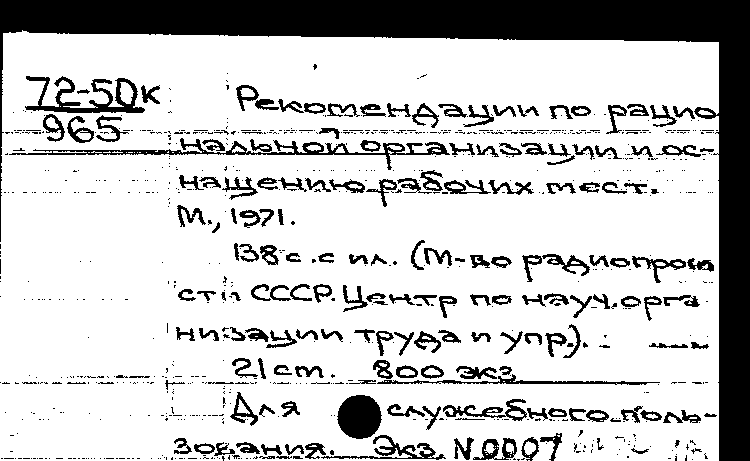 72-50к
965
Рекомендации по рацио
нальной организации и ос-
нащению рабочих мест.
М., 1971.
138 с. с ил. (М-во радиопром
сти СССР. Центр по науч. орга
низации труда и упр.).
21 см. 800 экз
Для служебного поль-
зования. Экз. N 0007